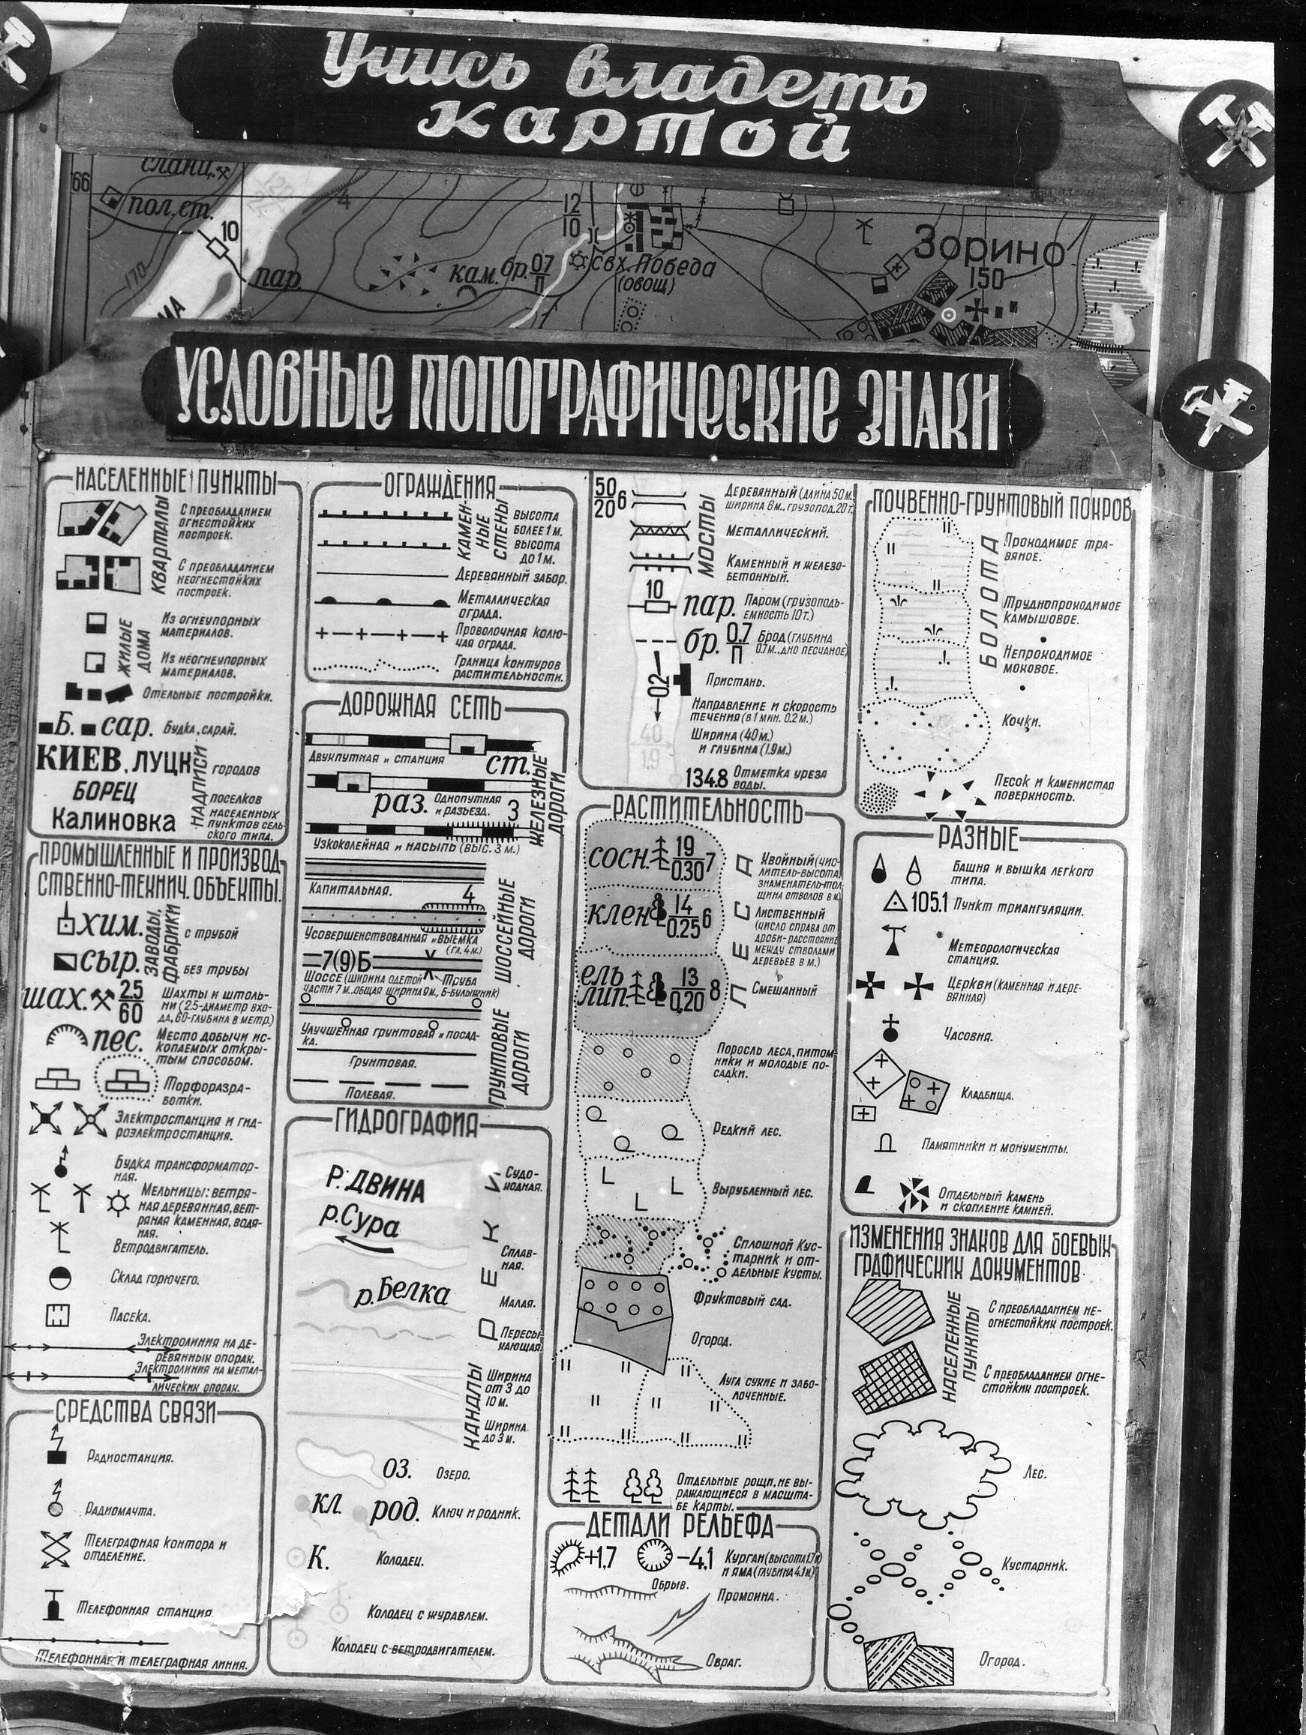 Учись владеть
картой
66
сланц.
пол.ст.
10
170
120
4
пар
кам.
бр. 0,7
П
12
10
свх. Победа
(овощ)
Зорино
150
УСЛОВНЫЕ ТОПОГРАФИЧЕСКИЕ ЗНАКИ
НАСЕЛЕННЫЕ ПУНКТЫ
КВАРТАЛЫ
С преобладанием
огнестойких
построек.
С преобладанием
неогнестойких
построек.
ЖИЛЫЕ
ДОМА
Из огнеупорных
материалов.
Из неогнеупорных
материалов.
Отельные постройки.
Б. сар. Будка, сарай.
КИЕВ, ЛУЦК
БОРЕЦ
Калиновка
НАДПИСИ
городов
поселков
населенных
пунктов сель
ского типа.
ПРОМЫШЛЕННЫЕ И ПРОИЗВОД
СТВЕННО-ТЕХНИЧ. ОБЪЕКТЫ.
ЗАВОДЫ,
ФАБРИКИ
хим. с трубой
сыр. без трубы
шах. 2.5
60
Шахты и штоль-
ни (2.5-диаметр вхо-
да, 60-глубина в метр.)
пес. Место добычи ис-
копаемых откры-
тым способом.
Торфоразра-
ботки.
Электростанция и гид-
роэлектростанция.
Будка трансформатор-
ная.
Мельницы: ветря-
ная деревянная, вет-
ряная каменная, водя-
ная.
Ветродвигатель.
Склад горючего.
Пасека.
Электролиния на де-
ревянных опорах.
Электролиния на метал-
лических опорах.
СРЕДСТВА СВЯЗИ
Радиостанция.
Радиомачта.
Телеграфная контора и
отделение.
Телефонная станция
Телефонная и телеграфная линия.
ОГРАЖДЕНИЯ
КАМЕН-
НЫЕ
СТЕНЫ
высота
более 1 м.
высота
до 1 м.
Деревянный забор.
Металлическая
ограда.
Проволочная колю-
чая ограда.
Граница контуров
растительности.
ДОРОЖНАЯ СЕТЬ
ЖЕЛЕЗНЫЕ
ДОРОГИ
Двухпутная и станция ст.
раз. Однопутная
и разъезд.
3
Узкоколейная и насыпь (выс. 3 м.)
ШОССЕЙНЫЕ
ДОРОГИ
Капитальная.
4
Усовершенствованная и выемка
(гл. 4 м.)
7(9)Б
Шоссе (ширина одетой Труба
части 7 м. общая ширина 9 м, Б-булыжник)
ГРУНТОВЫЕ
ДОРОГИ
Улучшенная грунтовая и посад-
ка.
Грунтовая.
Полевая.
ГИДРОГРАФИЯ
РЕКИ
Р. ДВИНА
Судо-
ходная.
р. Сура
Сплав-
ная.
р. Белка
Малая.
Пересы-
хающая.
КАНАЛЫ
Ширина
от 3 до
10 м.
Ширина
до 3 м.
ОЗ. Озеро.
кл. род. Ключ и родник.
К. Колодец.
Колодец с журавлем.
Колодец с ветродвигателем.
50
20 6
МОСТЫ
Деревянный (длина 50 м.
ширина 6 м., грузопод. 20 т.)
Металлический.
Каменный и железо-
бетонный.
10
пар. Паром (грузоподъ-
емность 10 т.)
бр. 0.7
П
Брод (глубина
0.7 м., дно песчаное)
Пристань.
0.2
Направление и скорость
течения (в 1 мин. 0.2 м.)
40
1.9
Ширина (40 м.)
и глубина (1.9 м.)
134.8 Отметка уреза
воды.
РАСТИТЕЛЬНОСТЬ
ЛЕСА
сосн. 19
0.30 7
Хвойный (чис-
литель-высота,
знаменатель-тол-
щина стволов в м.)
клен 14
0.25 6
Лиственный
(число справа от
дроби-расстояние
между стволами
деревьев в м.)
ель
лип. 13
0,20 8
Смешанный
Поросль леса, питом-
ники и молодые по-
садки.
Редкий лес.
Вырубленный лес.
Сплошной кус-
тарник и от-
дельные кусты.
Фруктовый сад.
Огород.
Луга сухие и забо-
лоченные.
Отдельные рощи, не вы-
ражающиеся в масшта-
бе карты.
ДЕТАЛИ РЕЛЬЕФА
+1,7 -4,1 Курган (высота 1.7 м)
и яма (глубина 4.1 м.)
Обрыв.
Промоина.
Овраг.
ПОЧВЕННО-ГРУНТОВЫЙ ПОКРОВ
БОЛОТА
Проходимое тра-
вяное.
Труднопроходимое
камышовое.
Непроходимое
моховое.
Кочки.
Песок и каменистая
поверхность.
РАЗНЫЕ
Башня и вышка легкого
типа.
105.1 Пункт триангуляции.
Метеорологическая
станция.
Церкви (каменная и дере-
вянная)
Часовня.
Кладбища.
Памятники и монументы.
Отдельный камень
и скопление камней.
ИЗМЕНЕНИЯ ЗНАКОВ ДЛЯ БОЕВЫХ
ГРАФИЧЕСКИХ ДОКУМЕНТОВ
НАСЕЛЕННЫЕ
ПУНКТЫ
С преобладанием не-
огнестойких построек.
С преобладанием огне-
стойких построек.
Лес.
Кустарник.
Огород.